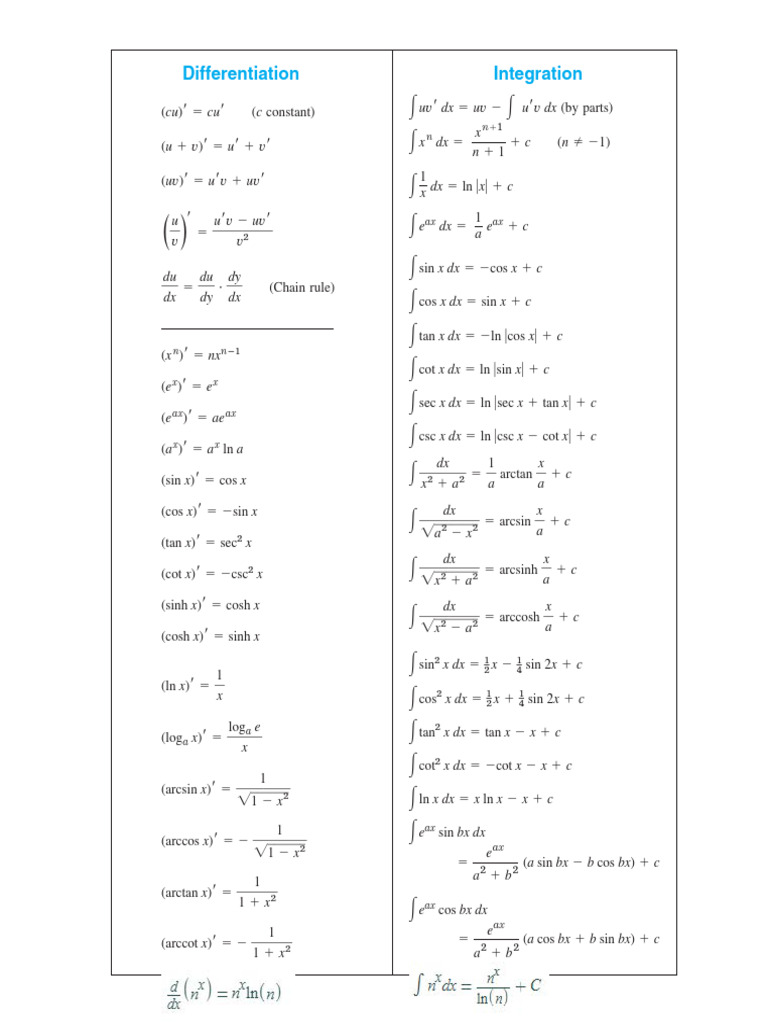 Differentiation
(cu)′ = cu′ (c constant)
(u + v)′ = u′ + v′
(uv)′ = u′v + uv′
(u/v)′ = (u′v − uv′)/v²
du/dx = du/dy · dy/dx (Chain rule)
(xⁿ)′ = nxⁿ⁻¹
(eˣ)′ = eˣ
(eᵃˣ)′ = aeᵃˣ
(aˣ)′ = aˣ ln a
(sin x)′ = cos x
(cos x)′ = −sin x
(tan x)′ = sec² x
(cot x)′ = −csc² x
(sinh x)′ = cosh x
(cosh x)′ = sinh x
(ln x)′ = 1/x
(logₐ x)′ = logₐ e/x
(arcsin x)′ = 1/√(1 − x²)
(arccos x)′ = − 1/√(1 − x²)
(arctan x)′ = 1/(1 + x²)
(arccot x)′ = − 1/(1 + x²)
d/dx (nˣ) = nˣ ln(n)
Integration
∫ uv′ dx = uv − ∫ u′v dx (by parts)
∫ xⁿ dx = xⁿ⁺¹/(n + 1) + c (n ≠ −1)
∫ 1/x dx = ln |x| + c
∫ eᵃˣ dx = 1/a eᵃˣ + c
∫ sin x dx = −cos x + c
∫ cos x dx = sin x + c
∫ tan x dx = −ln |cos x| + c
∫ cot x dx = ln |sin x| + c
∫ sec x dx = ln |sec x + tan x| + c
∫ csc x dx = ln |csc x − cot x| + c
∫ dx/(x² + a²) = 1/a arctan x/a + c
∫ dx/√(a² − x²) = arcsin x/a + c
∫ dx/√(x² + a²) = arcsinh x/a + c
∫ dx/√(x² − a²) = arccosh x/a + c
∫ sin² x dx = ½x − ¼ sin 2x + c
∫ cos² x dx = ½x + ¼ sin 2x + c
∫ tan² x dx = tan x − x + c
∫ cot² x dx = −cot x − x + c
∫ ln x dx = x ln x − x + c
∫ eᵃˣ sin bx dx
= eᵃˣ/(a² + b²) (a sin bx − b cos bx) + c
∫ eᵃˣ cos bx dx
= eᵃˣ/(a² + b²) (a cos bx + b sin bx) + c
∫ nˣ dx = nˣ/ln(n) + C